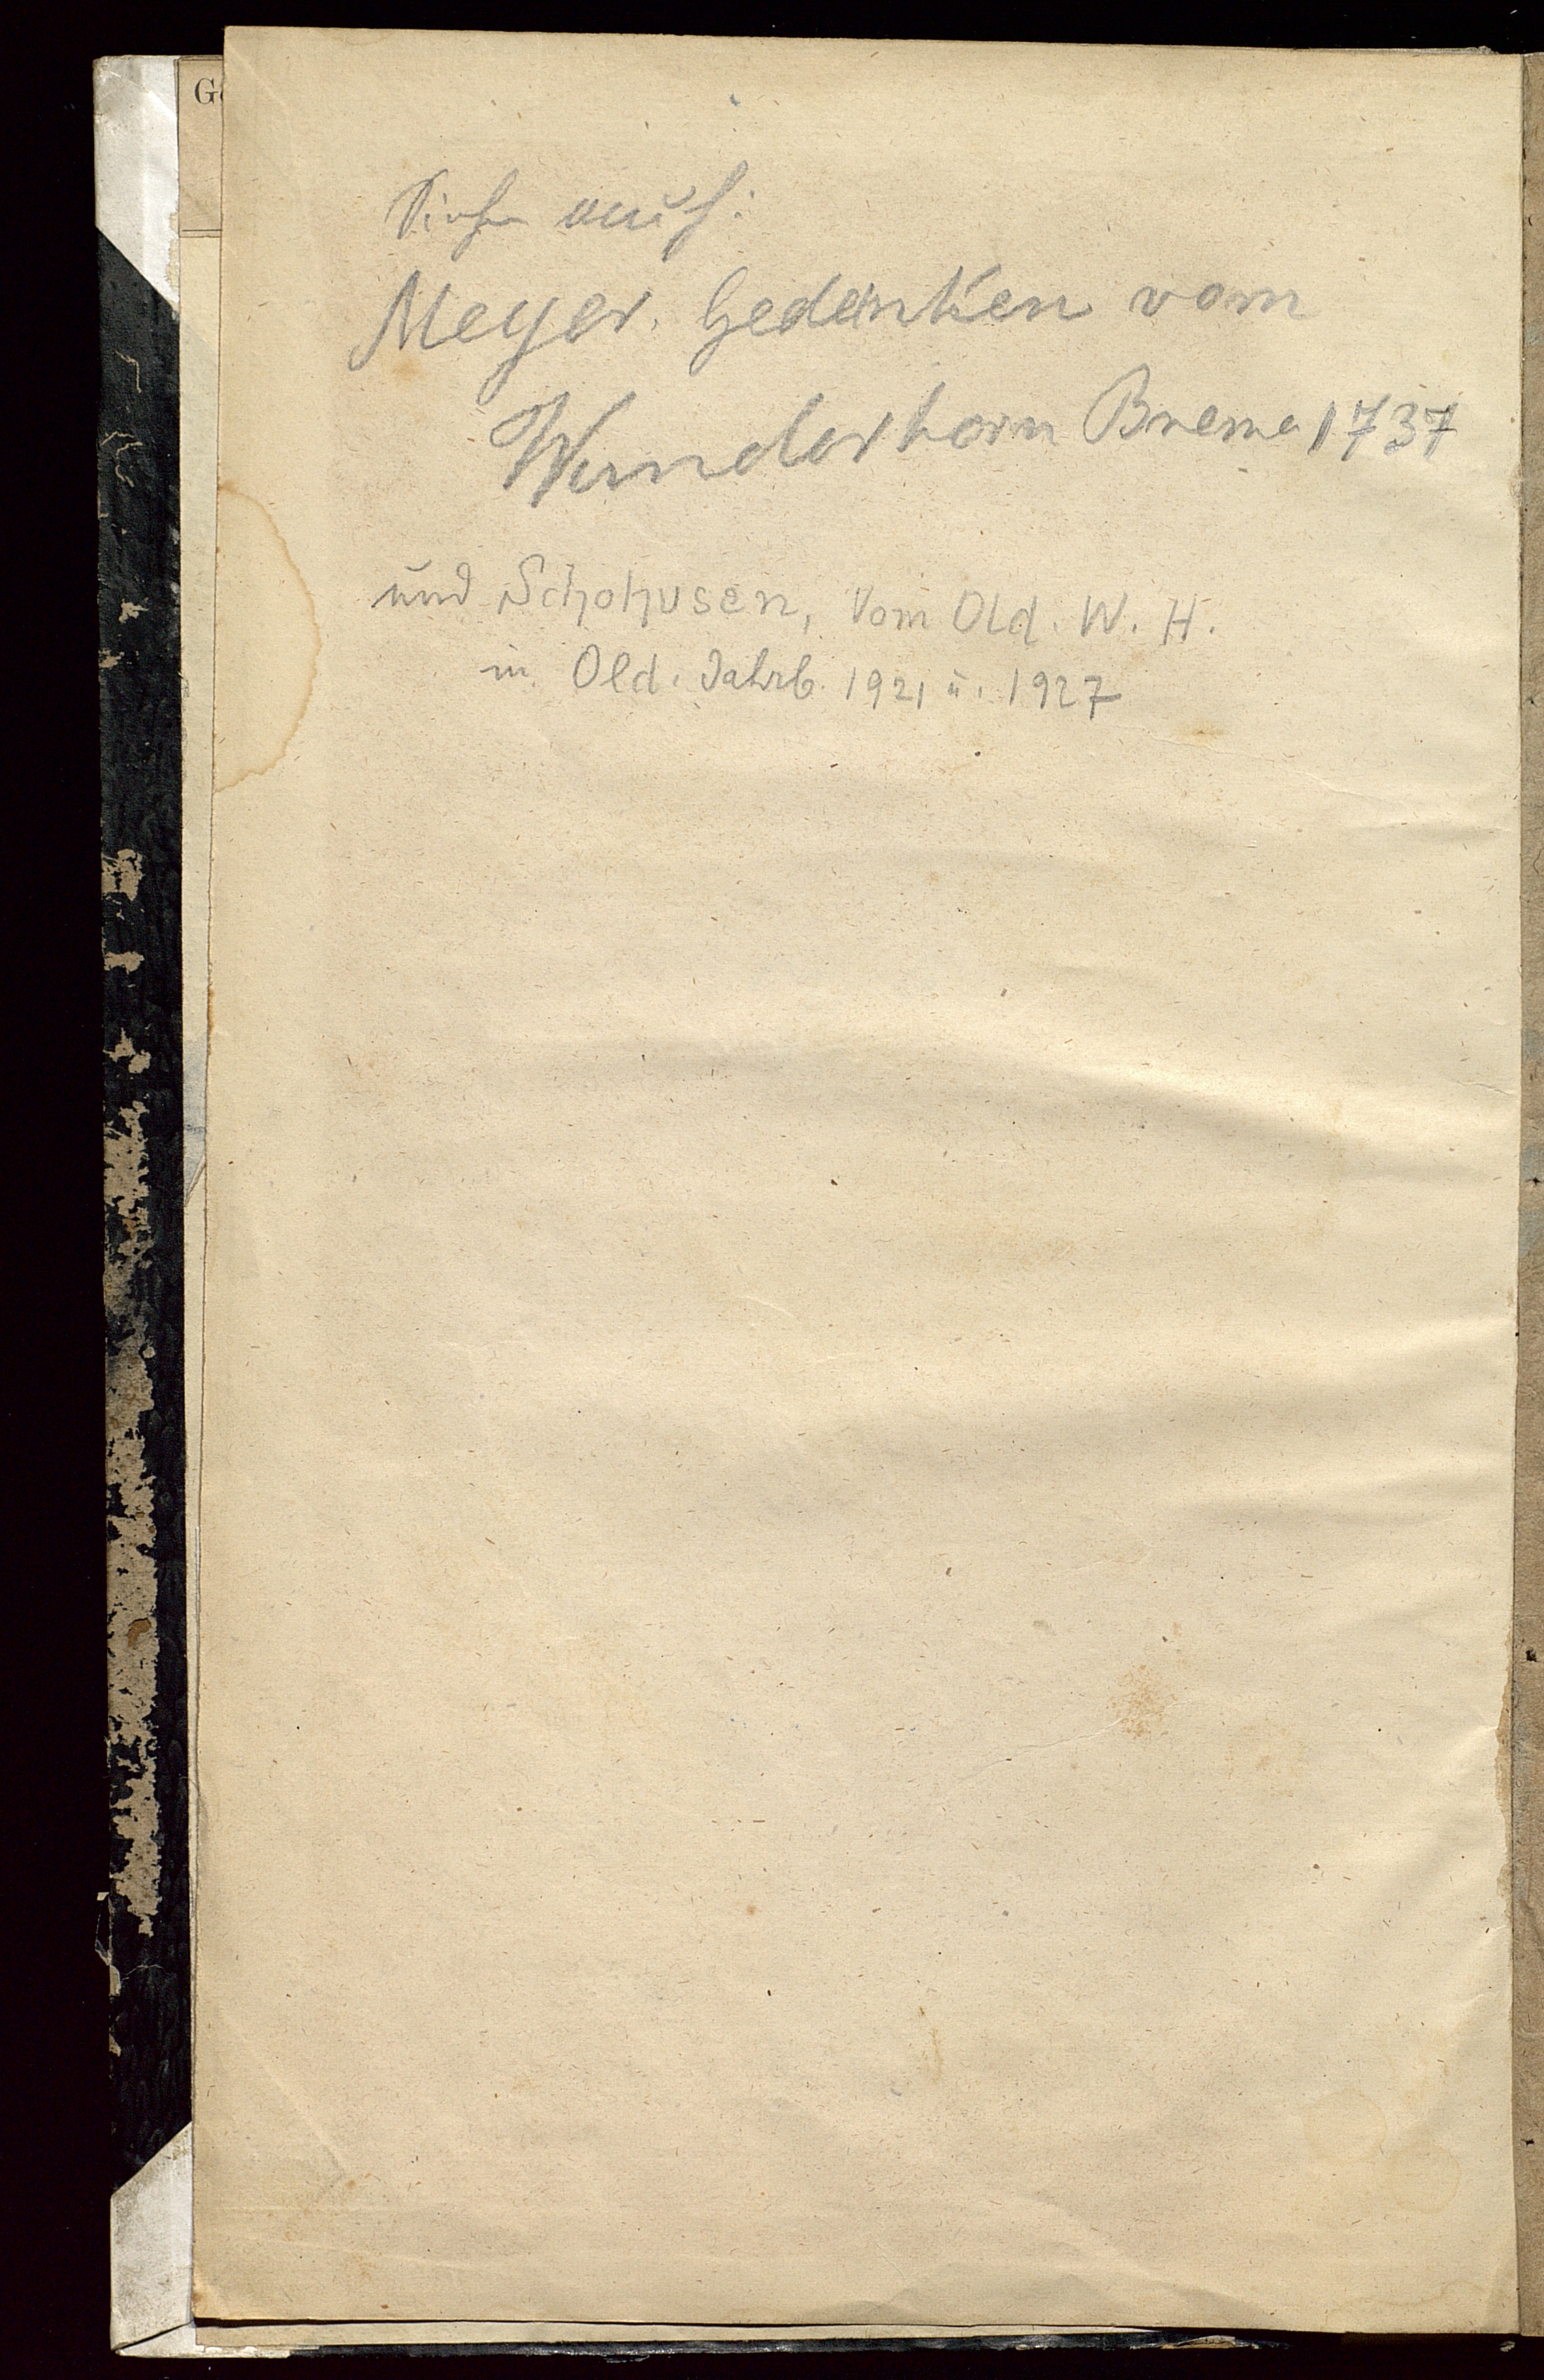 Ge
Siehe auch:
Meyer. Gedanken vom
Wunderhorn Bremæ 1737
und Schohusen, Vom Old. W. H.
in Old. Jahrb. 1921 u. 1927